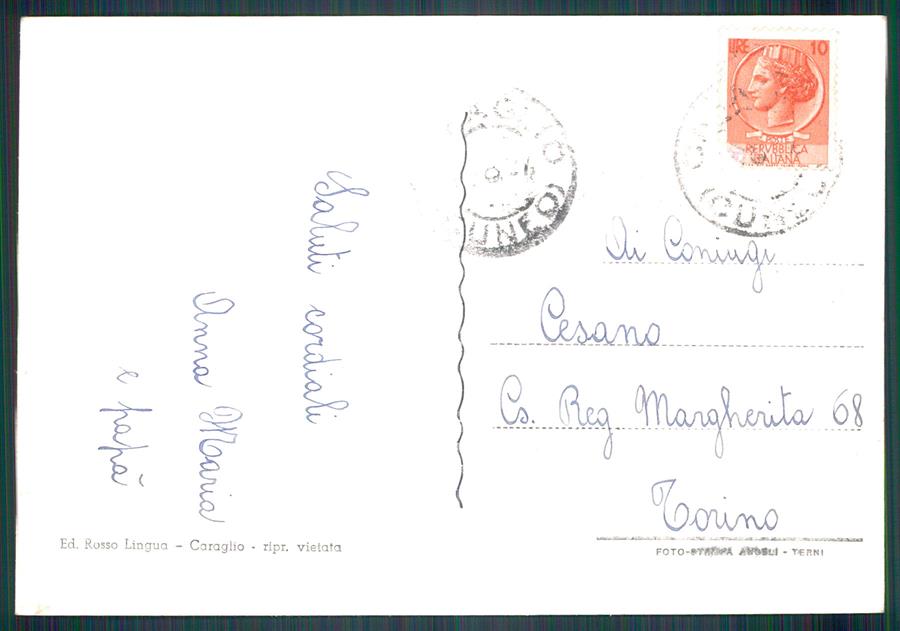 Saluti cordiali
Anna Maria
e papà
Ed. Rosso Lingua - Caraglio - ripr. vietata
LIRE 10
POSTE
REPVBBLICA
ITALIANA
(CUNEO)
Ai Coniugi
Cesano
Cs. Reg Margherita 68
Torino
FOTO-STAMPA ANGELI - TERNI